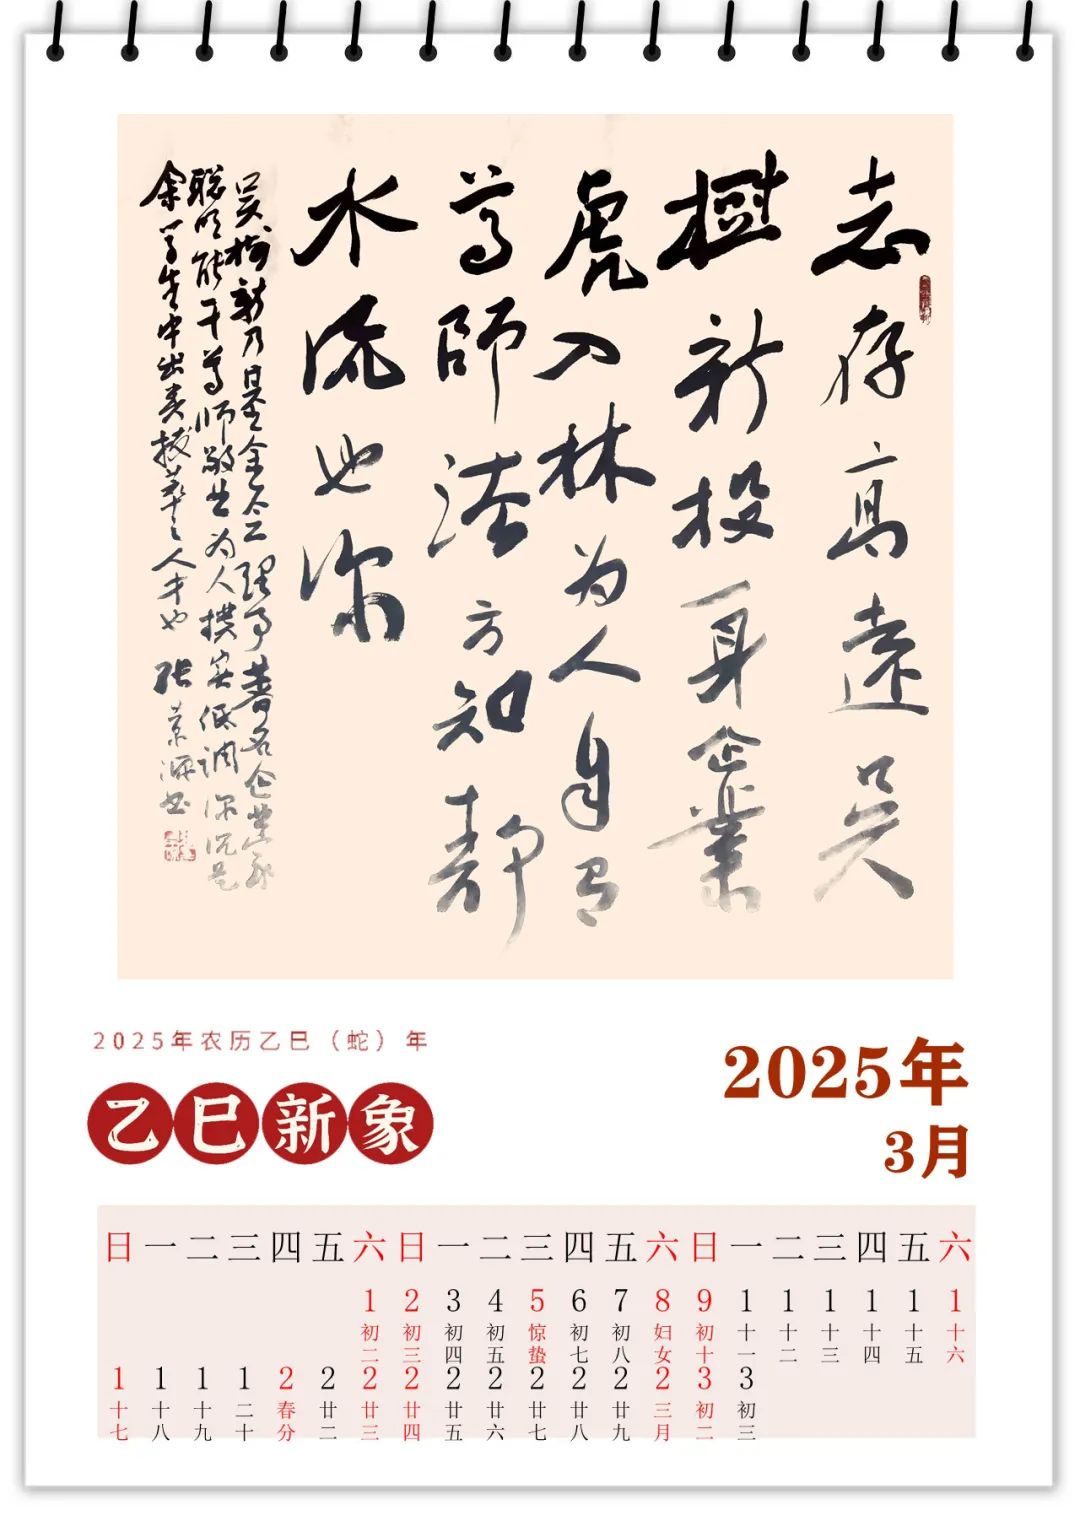 志存高遠吴
樹新投身企業
虎入林为人自有
尊師法方知靜
水流也深
吴樹新乃是金
聪明能干尊师敬业为人朴实低调深沉是
余学生中出类拔萃之人才也
张
2025年农历乙巳（蛇）年
乙巳新象
2025年
3月
日 一 二 三 四 五 六 日 一 二 三 四 五 六 日 一 二 三 四 五 六
1 2 3 4 5 6 7 8 9 1 1 1 1 1 1
初二 初三 初四 初五 惊蛰 初七 初八 妇女 初十 十一 十二 十三 十四 十五 十六
1 1 1 1 2 2 2 2 2 2 2 2 2 2 3 3
十七 十八 十九 二十 春分 廿二 廿三 廿四 廿五 廿六 廿七 廿八 廿九 三月 初二 初三